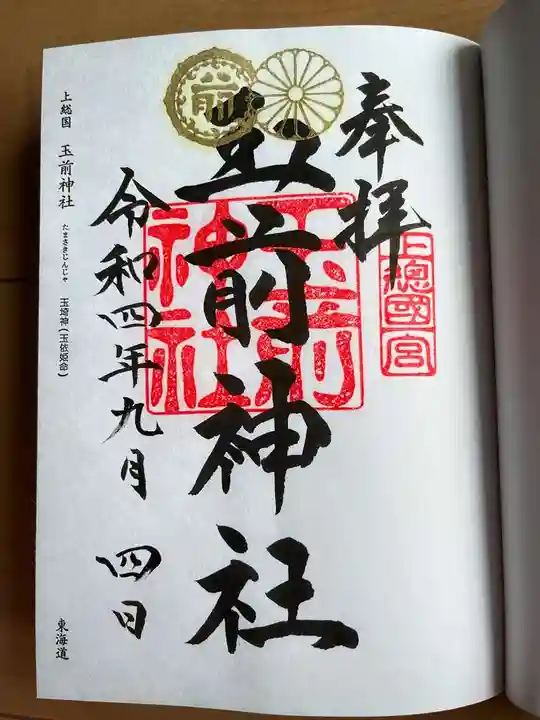 奉拝
上總國一宮
玉前神社
玉前神社
前
令和四年九月 四日
上総国 玉前神社 たまさきじんじゃ 玉埼神(玉依姫命)
東海道